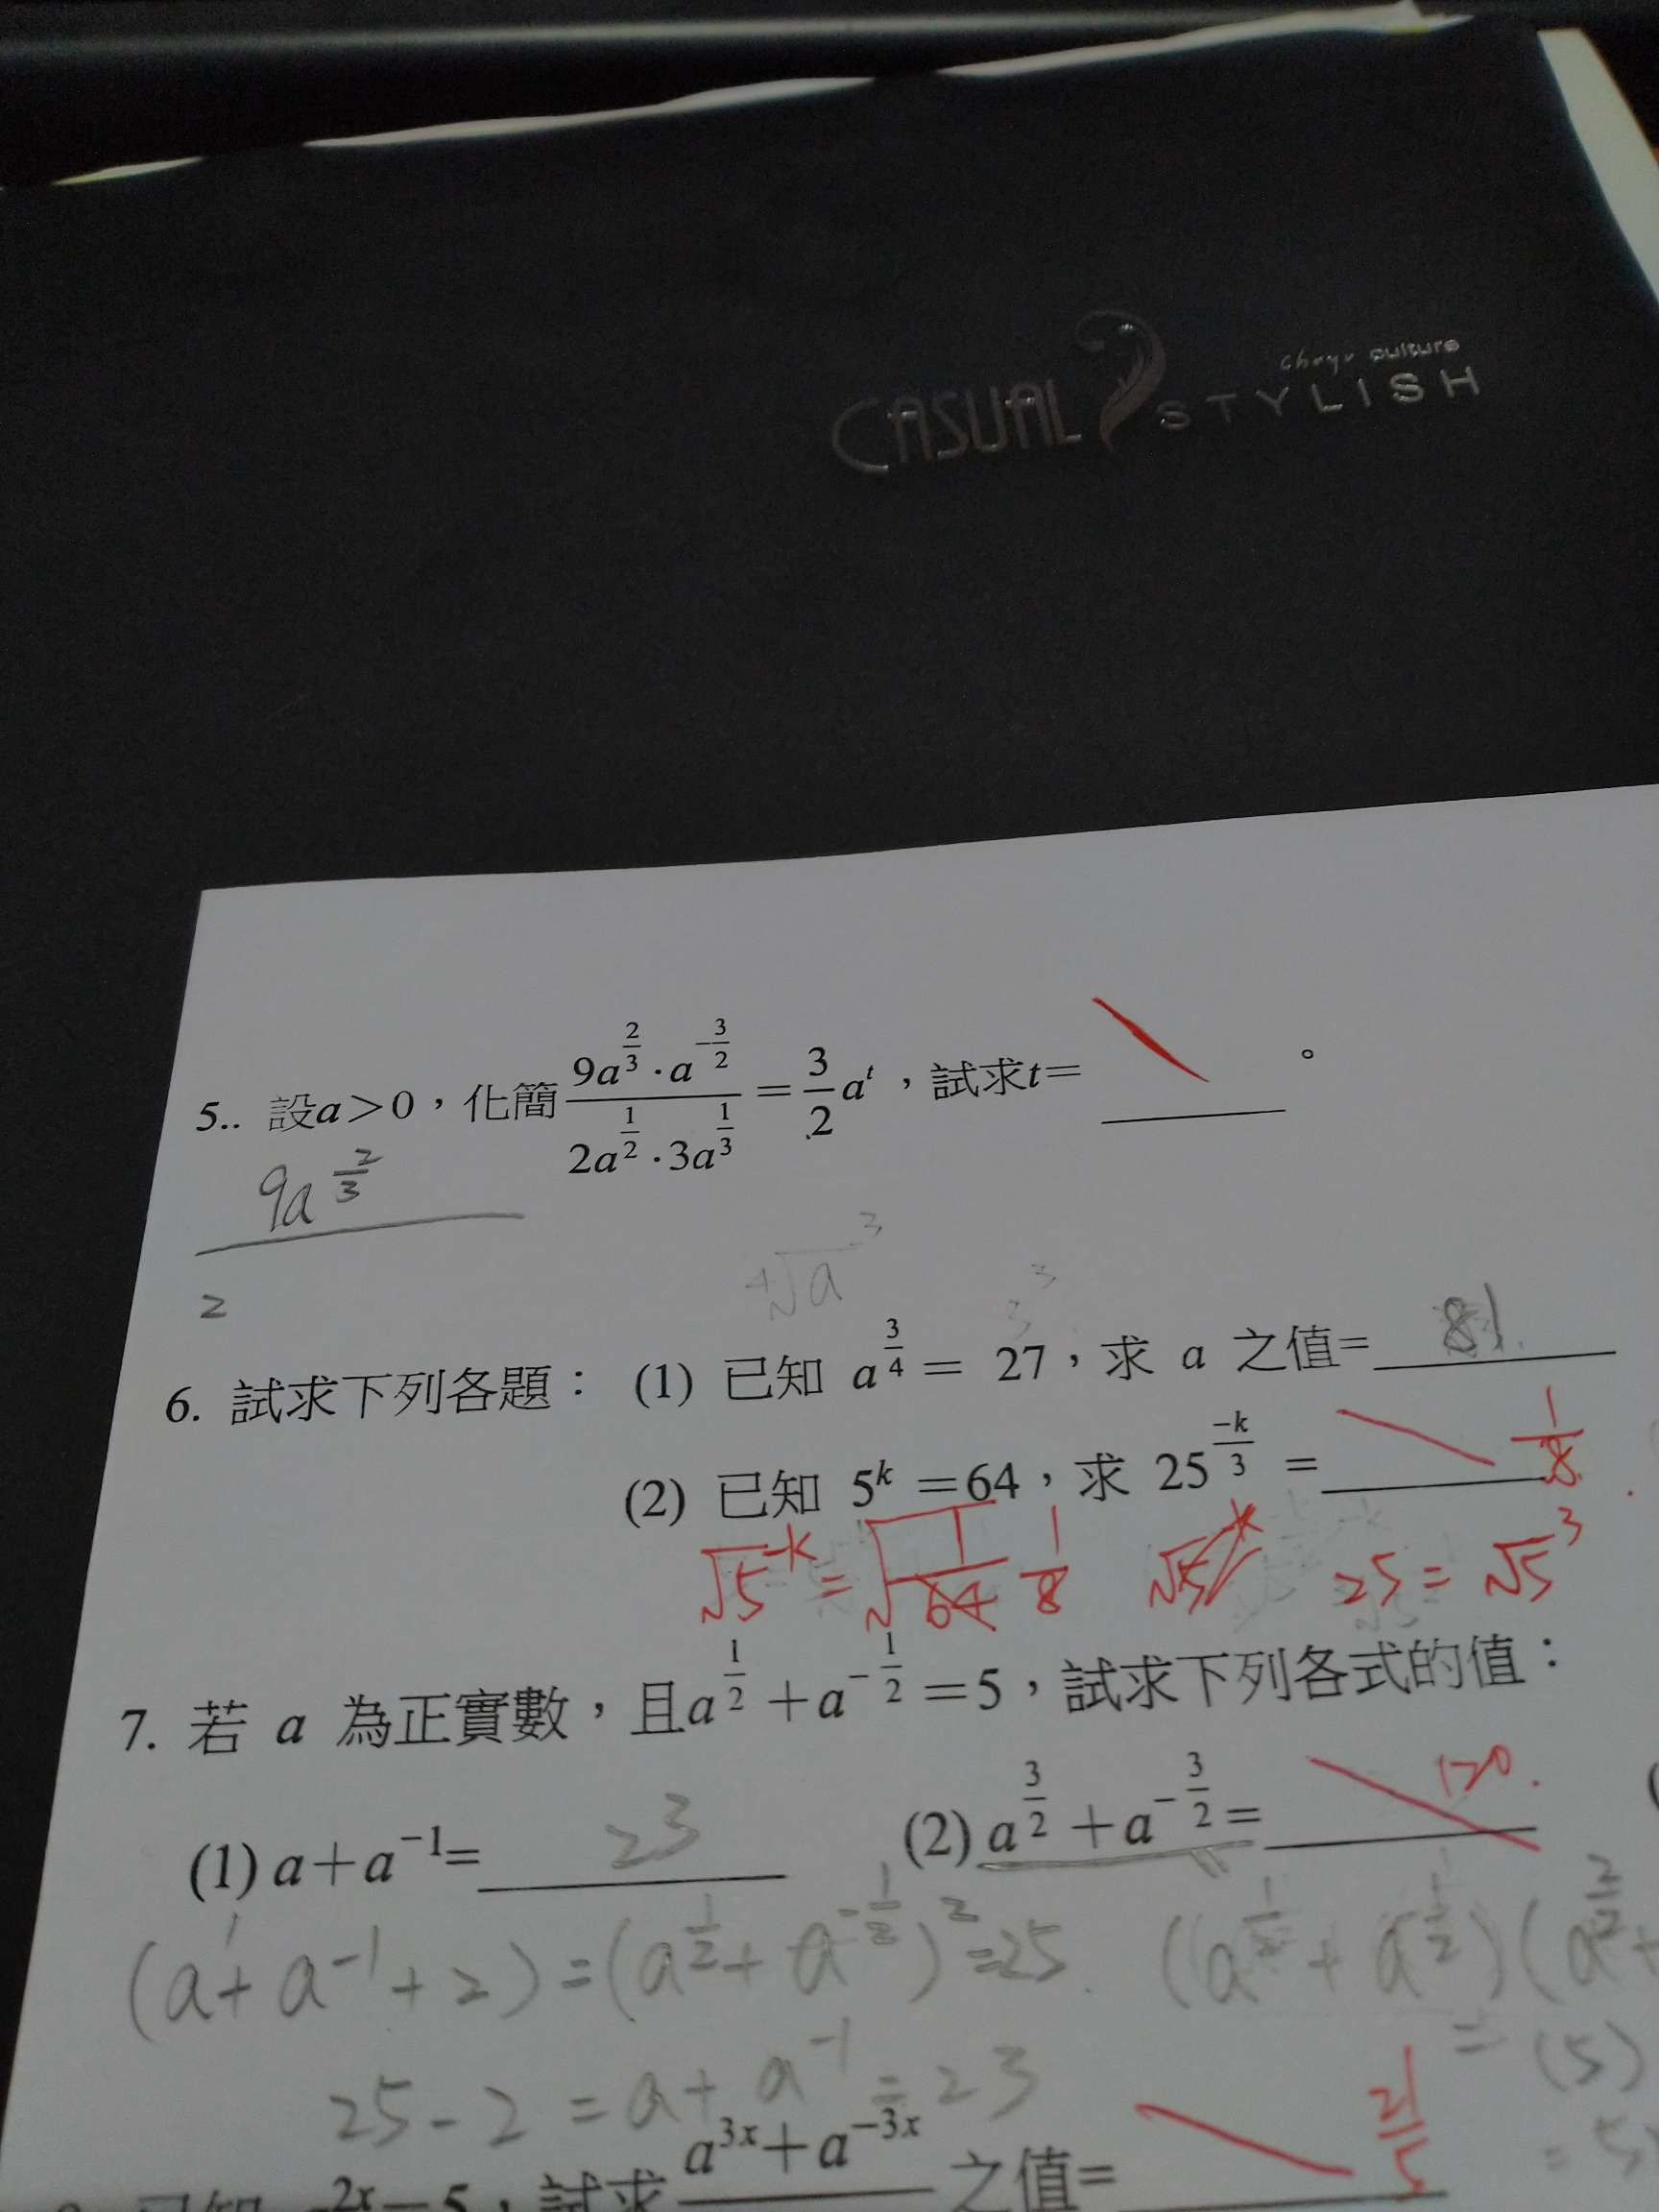 CASUAL STYLISH
culture
5.. 設a>0，化簡 9a^{2/3}·a^{-3/2} / 2a^{1/2}·3a^{1/3} = 3/2 a^t，試求t=____。
9a^{2/3}
2
∜a^3
3^3
6. 試求下列各題： (1) 已知 a^{3/4} = 27，求 a 之值= 81
(2) 已知 5^k =64，求 25^{-k/3} = 1/8
√5^{-k} = √(1/64) 1/8 √5^k 25=√5^3
7. 若 a 為正實數，且a^{1/2}+a^{-1/2}=5，試求下列各式的值：
(1) a+a^{-1}= 23 (2) a^{3/2}+a^{-3/2}= 110.
(a^1+a^{-1}+2)=(a^{1/2}+a^{-1/2})^2=25. (a^{1/2}+a^{-1/2})(a^{2/2}+
=(5)
25-2=a+a^{-1}=23
=5
a^{3x}+a^{-3x} 之值= 21/5
2x=5，試求